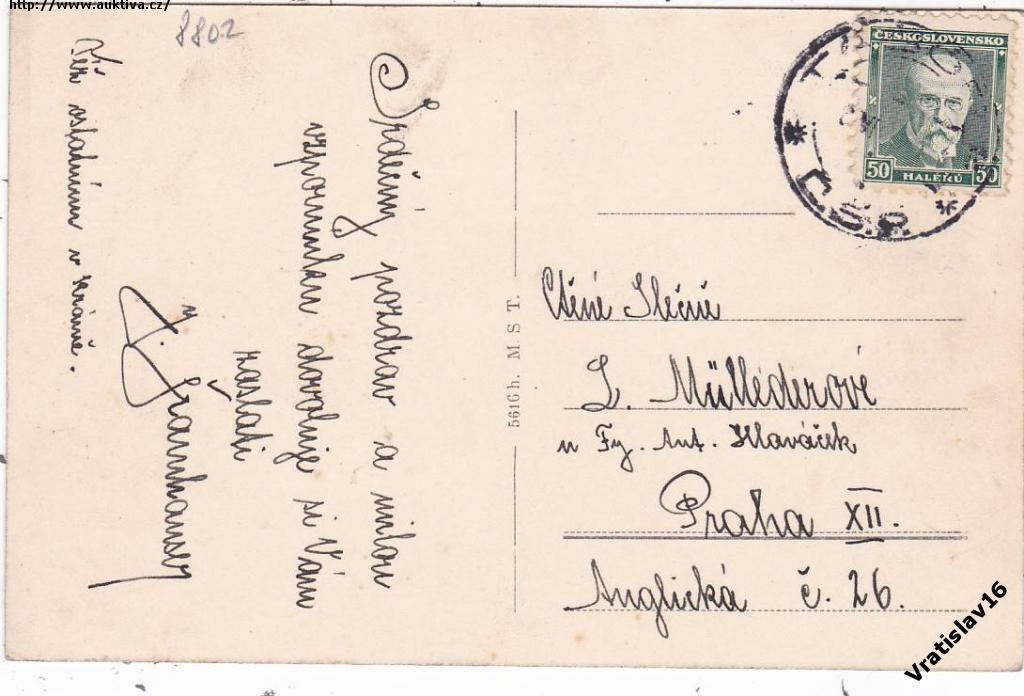 http://www.auktiva.cz/
8802
Srdečný pozdrav a milou
vzpomínku dovoluje si Vám
zaslati
v Krámě.
ČESKOSLOVENSKO
50 HALÉŘŮ 50
Č.S.R.
5616 h. M. S T.
Ctěné Slečně
L. Müllederové
u Fy. Ant. Hlaváček
Praha XII.
Anglická č. 26.
Vratislav16